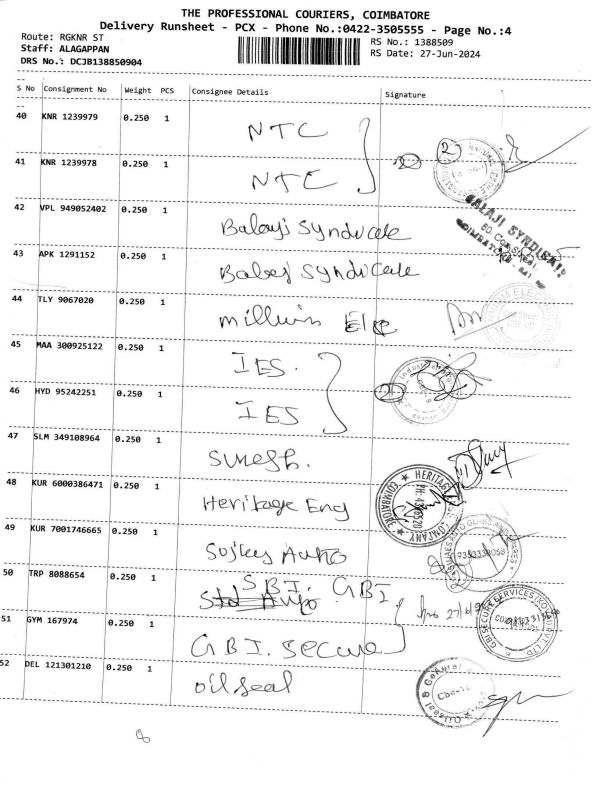 THE PROFESSIONAL COURIERS, COIMBATORE
Delivery Runsheet - PCX - Phone No.:0422-3505555 - Page No.:4
Route: RGKNR ST
RS No.: 1388509
Staff: ALAGAPPAN
RS Date: 27-Jun-2024
DRS No.: DCJB138850904
S No Consignment No Weight PCS Consignee Details Signature
40 KNR 1239979 0.250 1 NTC
2
41 KNR 1239978 0.250 1 NTC
42 VPL 949052402 0.250 1 Balaji Syndicate
BALAJI SYNDICATE
43 APK 1291152 0.250 1 Balaji Syndicate
44 TLY 9067020 0.250 1 millwin Ele
45 MAA 300925122 0.250 1 IES.
46 HYD 95242251 0.250 1 IES
2
47 SLM 349108964 0.250 1 Suresh.
48 KUR 6000386471 0.250 1 Heritage Eng
HERITAGE COMPANY COIMBATORE
49 KUR 7001746665 0.250 1 Sujay Auto
50 TRP 8088654 0.250 1 SBI. GBI
51 GYM 167974 0.250 1 GBI. Secure
GBI SECURE SERVICES
52 DEL 121301210 0.250 1 oil seal
8